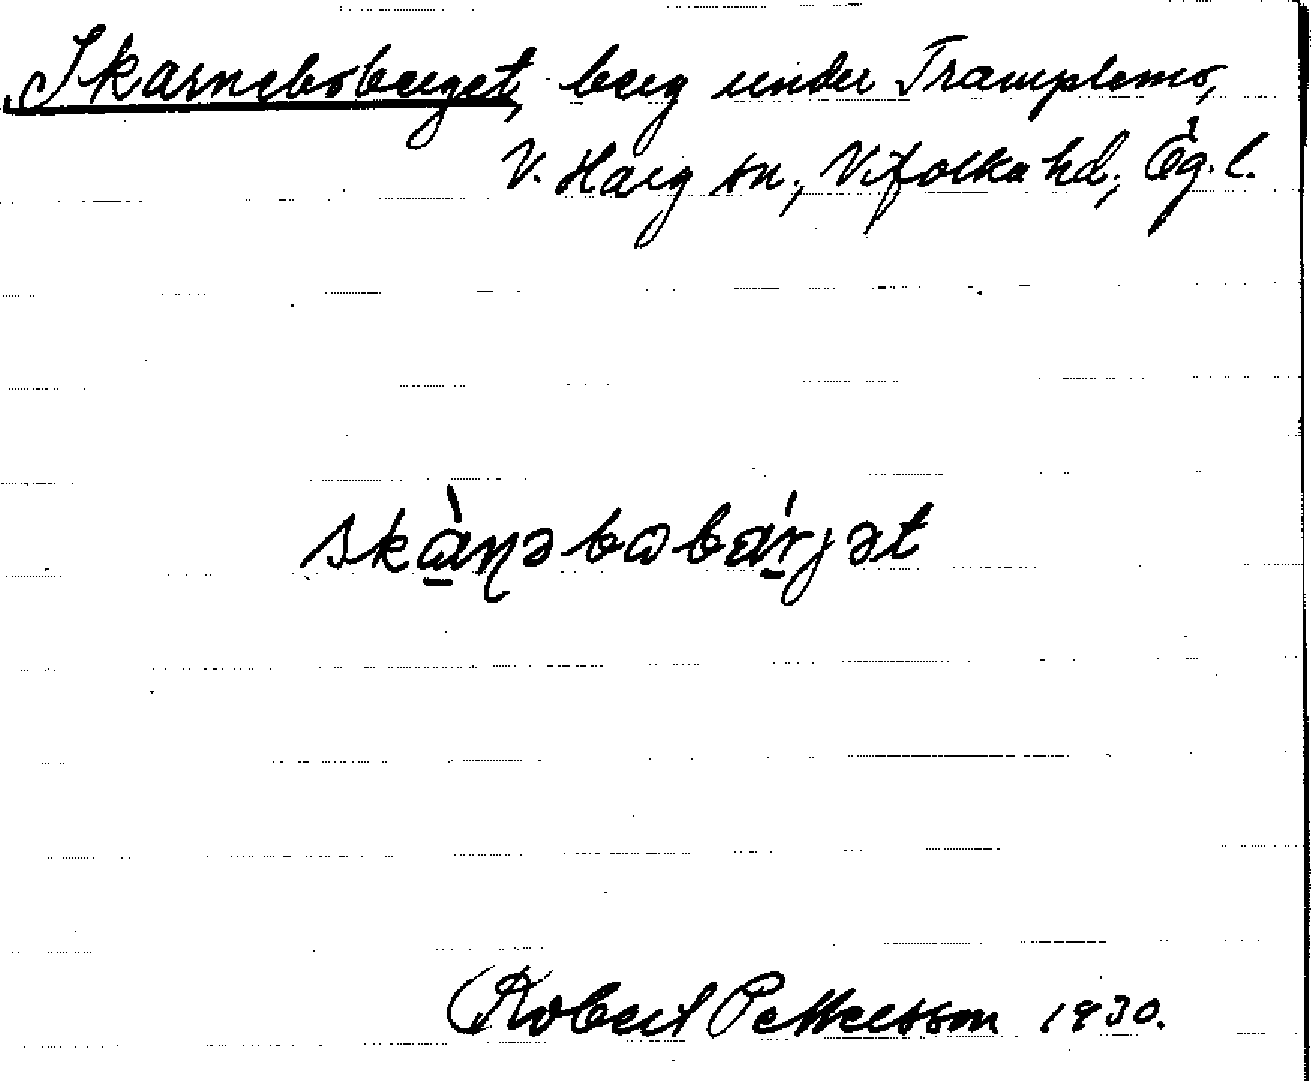 Skarneboberget, berg under Tramplemo,
V. Harg sn, Vifolka hd, Ög. l.
skànəbωbárjət
Robert Pettersson 1930.